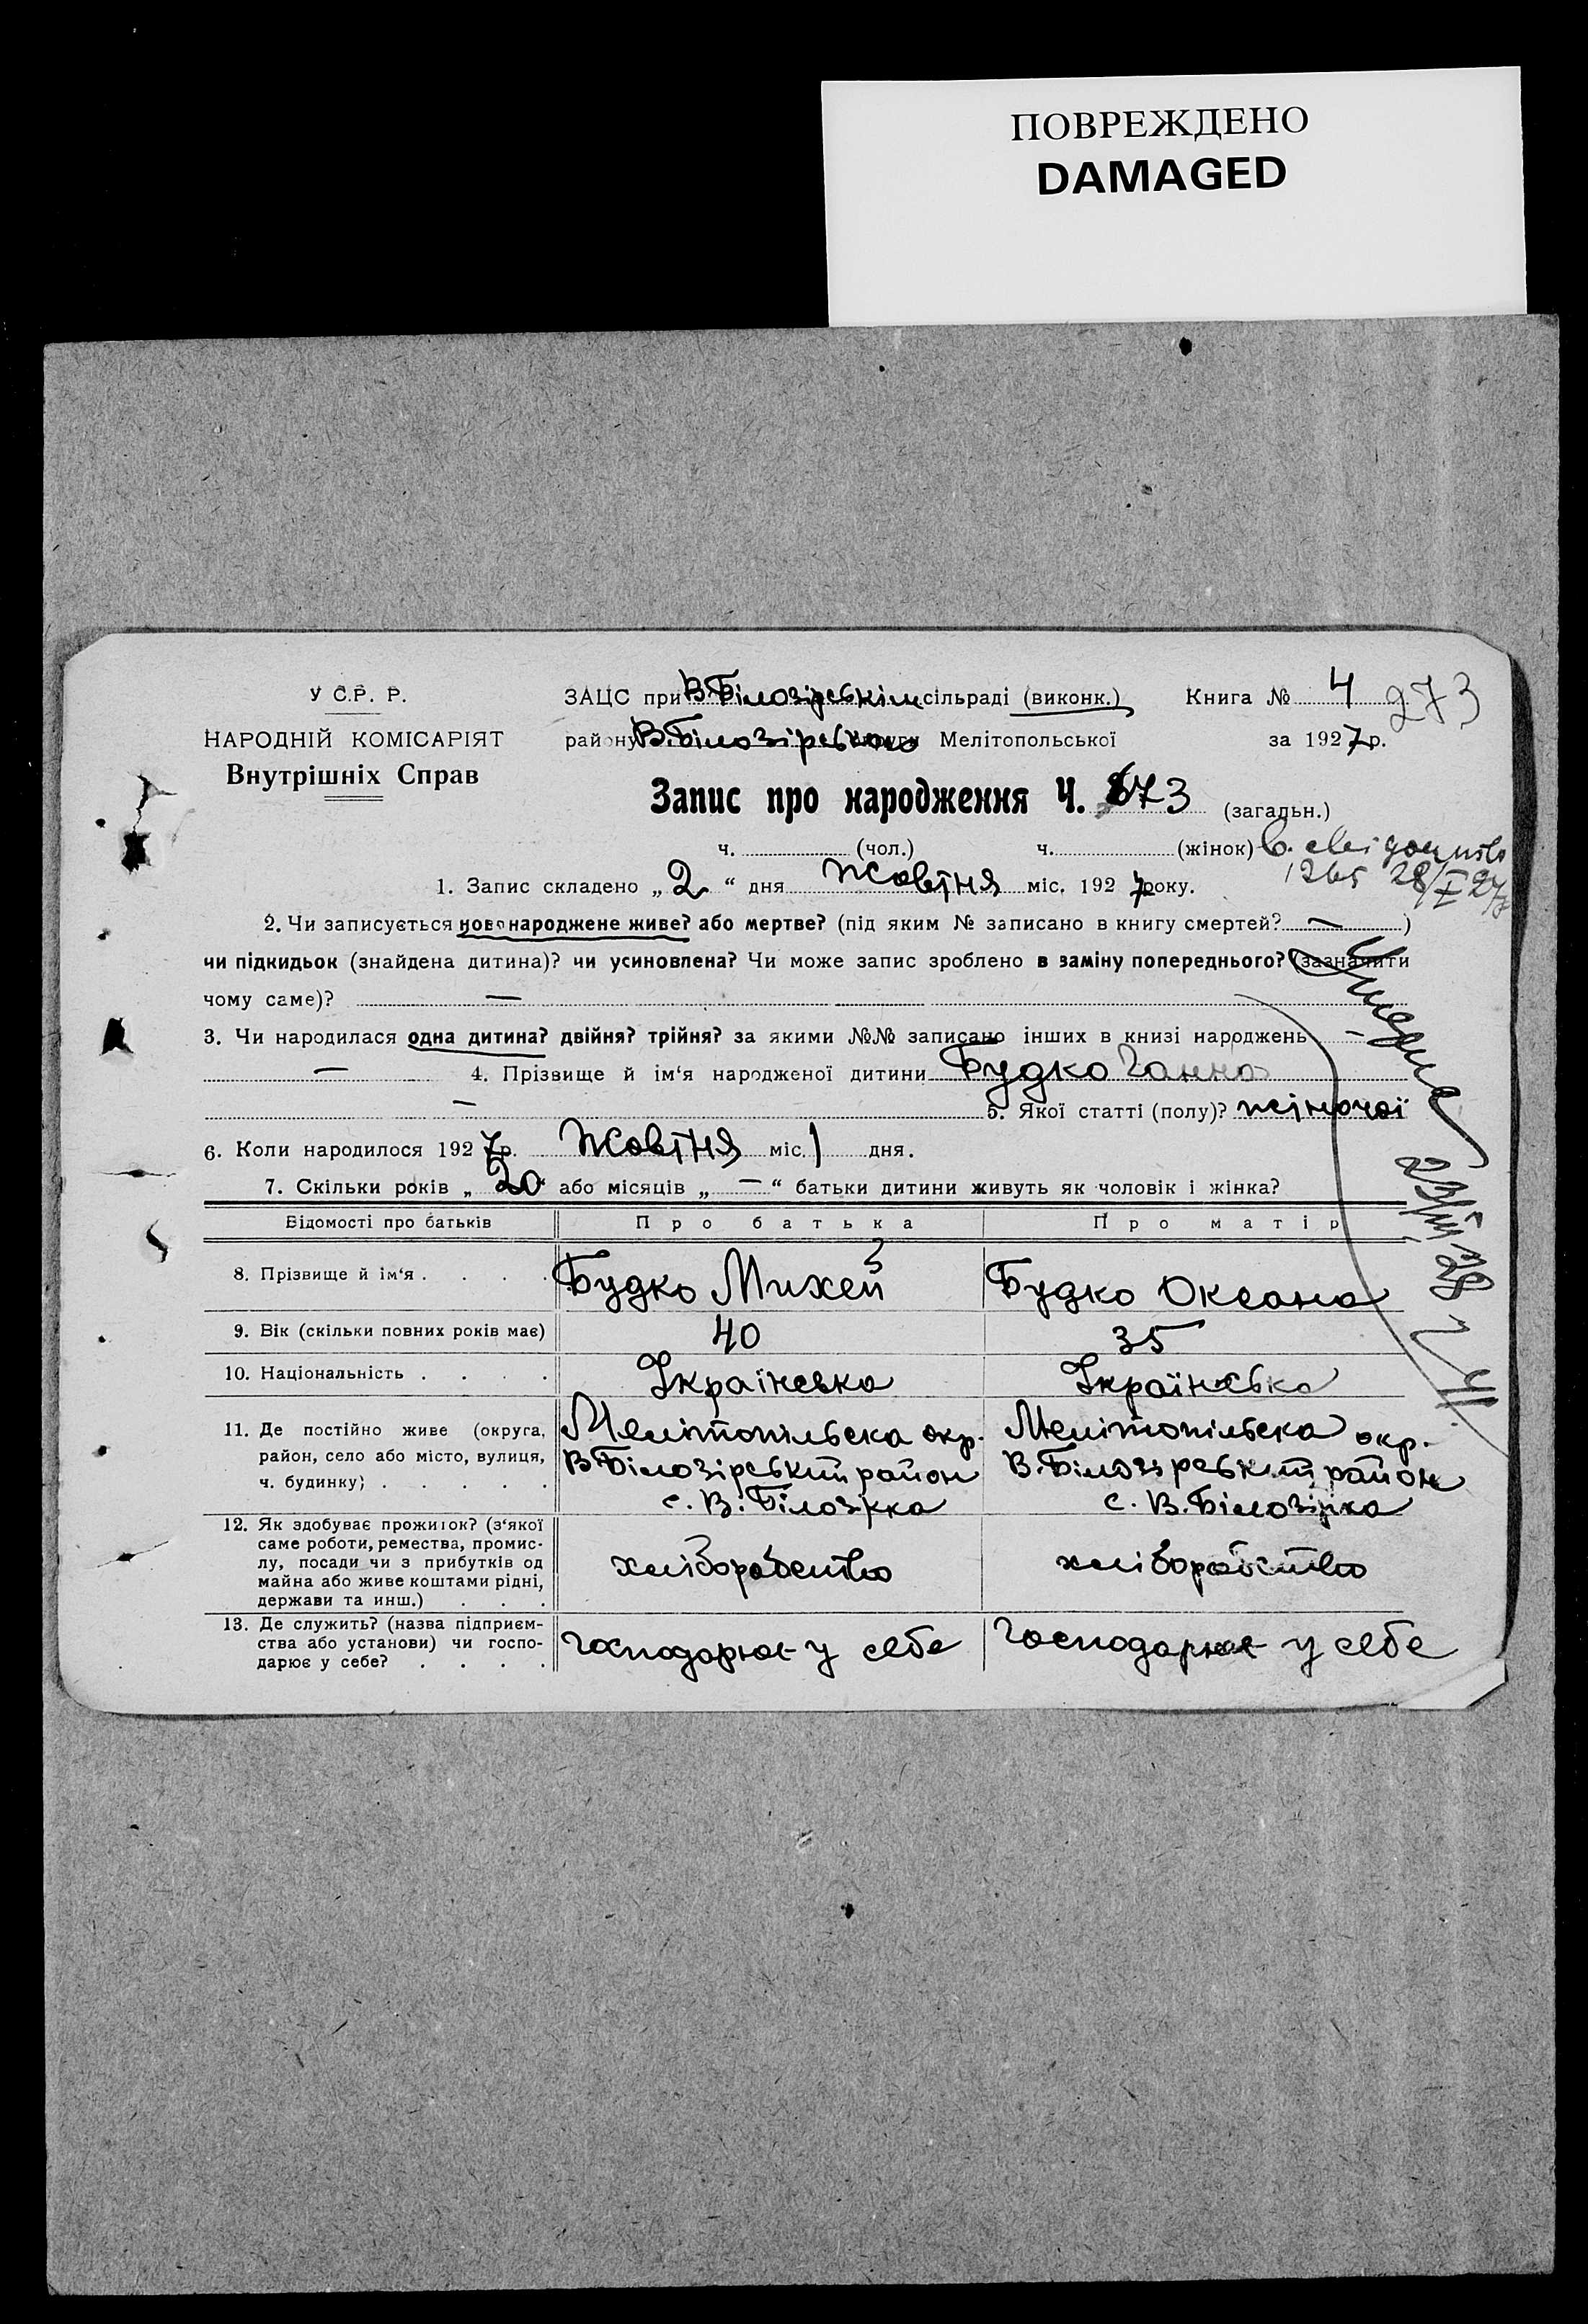 ПОВРЕЖДЕНО
DAMAGED
У С.Р. Р.
НАРОДНІЙ КОМІСАРІЯТ
Внутрішніх Справ
ЗАЦС при В.Білозірськім сільраді (виконк.) Книга № 4 273
району В.Білозірсько округи Мелітопольської за 1927 р.
Запис про народження Ч. 673 (загальн.)
ч. (чол.) ч. (жінок)
1265 28/X 27
1. Запис складено „ 2 “ дня Жовтня міс. 1927 року.
2. Чи записується новонароджене живе? або мертве? (під яким № записано в книгу смертей? — )
чи підкидьок (знайдена дитина)? чи усиновлена? Чи може запис зроблено в заміну попереднього? (зазначити
чому саме)? —
3. Чи народилася одна дитина? двійня? трійня? за якими №№ записано інших в книзі народжень —
— 4. Прізвище й ім‘я народженої дитини Будко Ганна
— 5. Якої статті (полу)? жіночої
6. Коли народилося 1927 р. Жовтня міс. 1 дня.
7. Скільки років „ 20 “ або місяців „ — “ батьки дитини живуть як чоловік і жінка?
Відомості про батьків Про батька Про матір
8. Прізвище й ім‘я . . . . Будко Михей Будко Оксана
9. Вік (скільки повних років має) 40 35
10. Національність . . . . Українська Українська
11. Де постійно живе (округа, район, село або місто, вулиця, ч. будинку) . . . . .
Мелітопільска окр. Мелітопільска окр.
В.Білозірський район В.Білозірський район
с. В.Білозірка с. В.Білозірка
12. Як здобуває прожиток? (з‘якої
саме роботи, ремества, промис-
лу, посади чи з прибутків од
майна або живе коштами рідні,
держави та инш.) . . .
хліборобство хліборобство
13. Де служить? (назва підприєм-
ства або установи) чи госпо-
дарює у себе? . . . .
господарює у себе господарює у себе